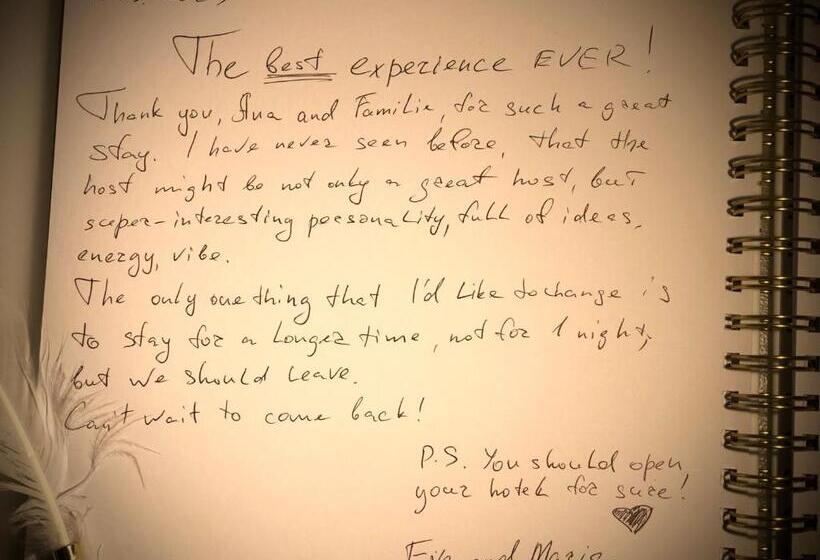 The best experience EVER!
Thank you, Ana and Familie, for such a great
stay. I have never seen before, that the
host might be not only a great host, but
super-interesting personality, full of ideas,
energy, vibe.
The only one thing that I'd like to change is
to stay for a longer time, not for 1 night,
but we should leave.
Can't wait to come back!
P.S. You should open
your hotel for sure!
and